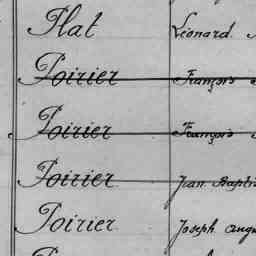 Plat Léonard
Poirier François
Poirier François
Poirier Jean Baptis
Poirier Joseph Augu